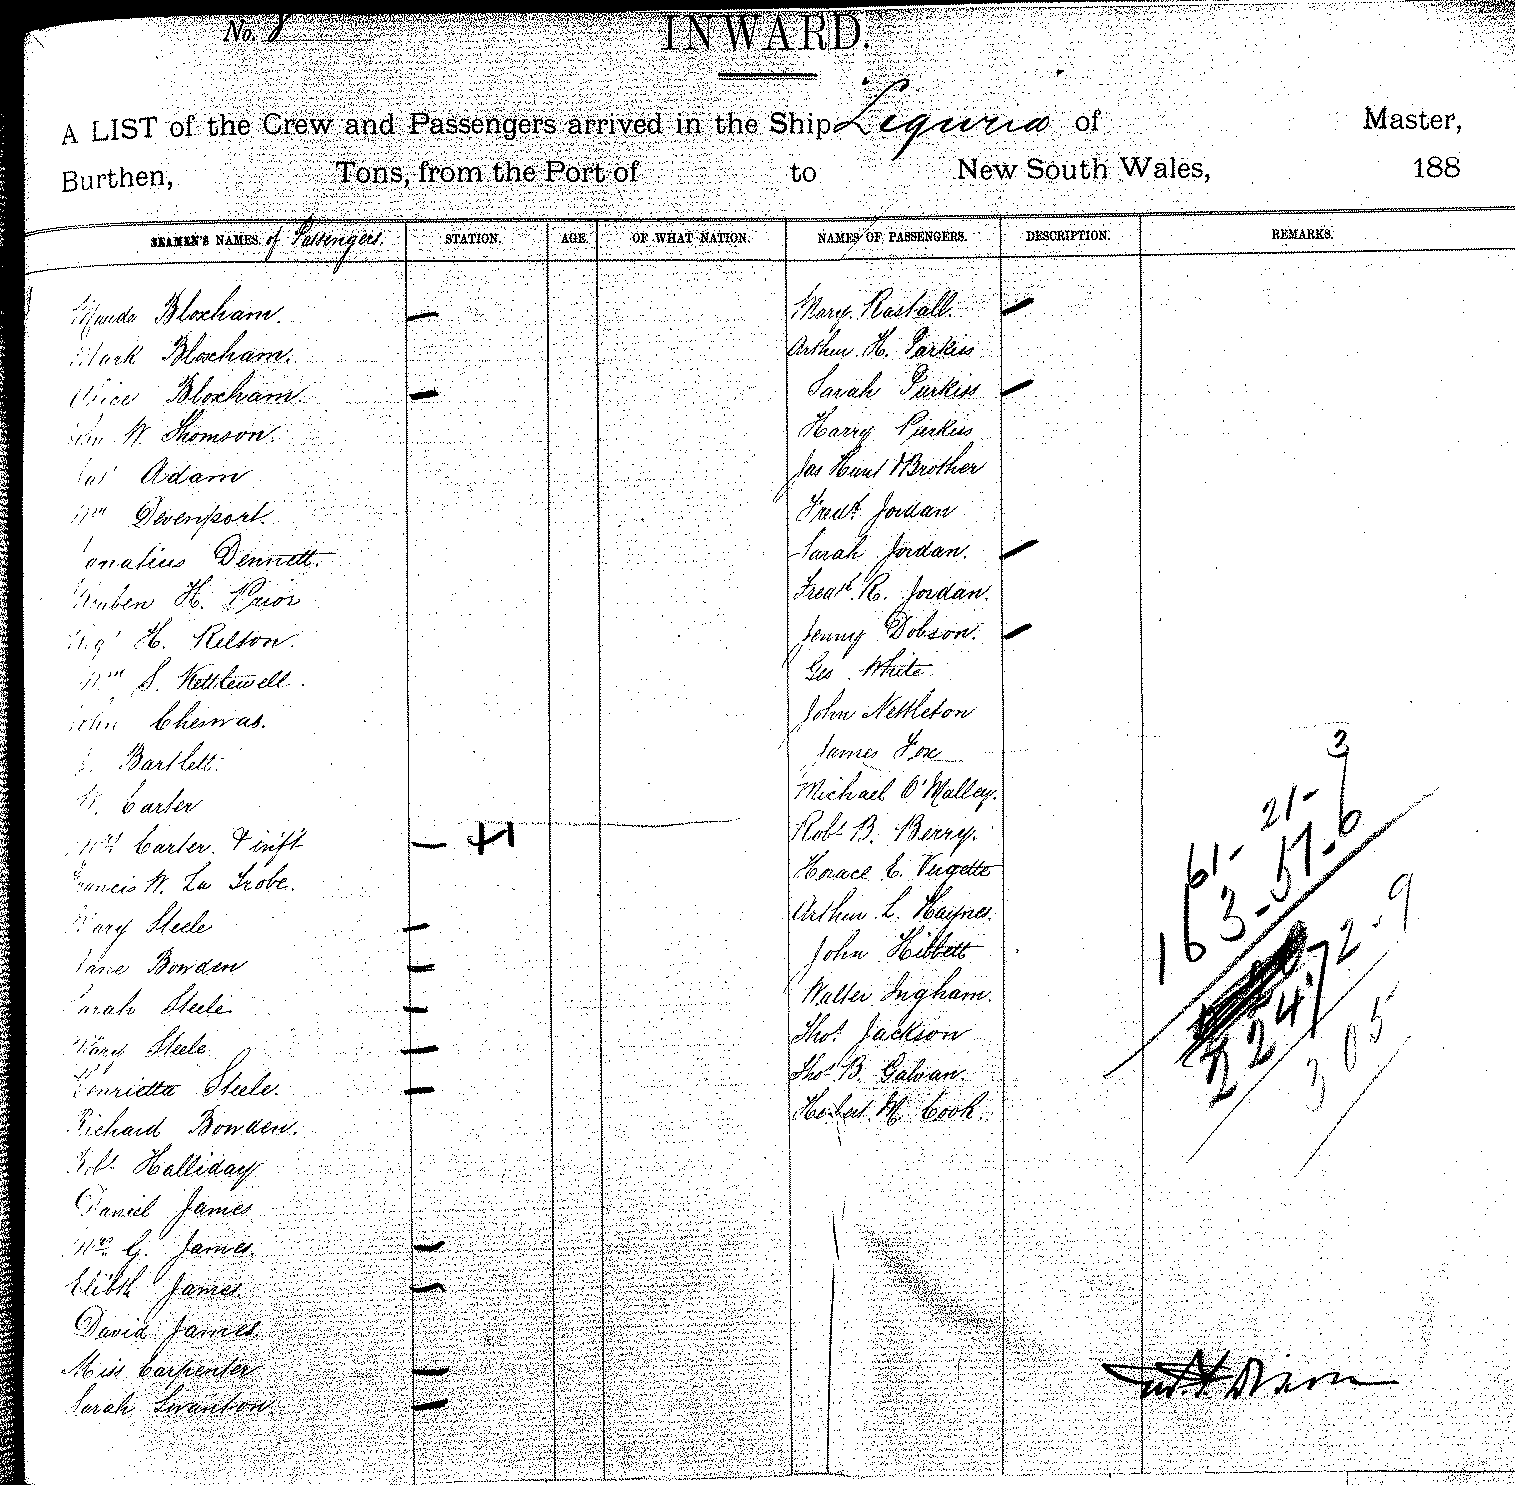 No. 8
INWARD.
A LIST of the Crew and Passengers arrived in the Ship Liguria of Master,
Burthen, Tons, from the Port of to New South Wales, 188
SEAMEN'S NAMES. of Passengers. STATION. AGE. OF WHAT NATION. NAMES OF PASSENGERS. DESCRIPTION. REMARKS.
Bloxham. — Mary Rastall. —
Mark Bloxham. Arthur H. Parkiss
Alice Bloxham. — Sarah Purkiss —
John W. Thomson. Harry Purkiss
Jas Adam Jas Hunt & Brother
Wm Devenport. Fredk Jordan
Ignatius Dennett. Sarah Jordan. —
Reuben H. Prior Fredk R. Jordan.
H. Relton. Jenny Dobson. —
Wm S. Kettlewell. Geo White
John Chenvas. John Nettleton
Bartlett. James Fox
W. Carter Michael O'Malley. 3
Mrs Carter. & inft — +1 Robt B. Berry. 21-
Francis W. La Trobe. Horace E. Vergette 61- 57-6
Mary Steele — Arthur L. Haynes. 163-
Jane Bowden — John Hibbett 72-9
Sarah Steele — Walter Ingham.
Mary Steele — Thos Jackson 224
Henrietta Steele. — Thos B. Galvan. 305
Richard Bowden. Hebert M Cook.
Robt Halliday
Daniel James
Mrs G. James. —
Elibth James —
David James
Miss Carpenter —
Sarah Swanton —